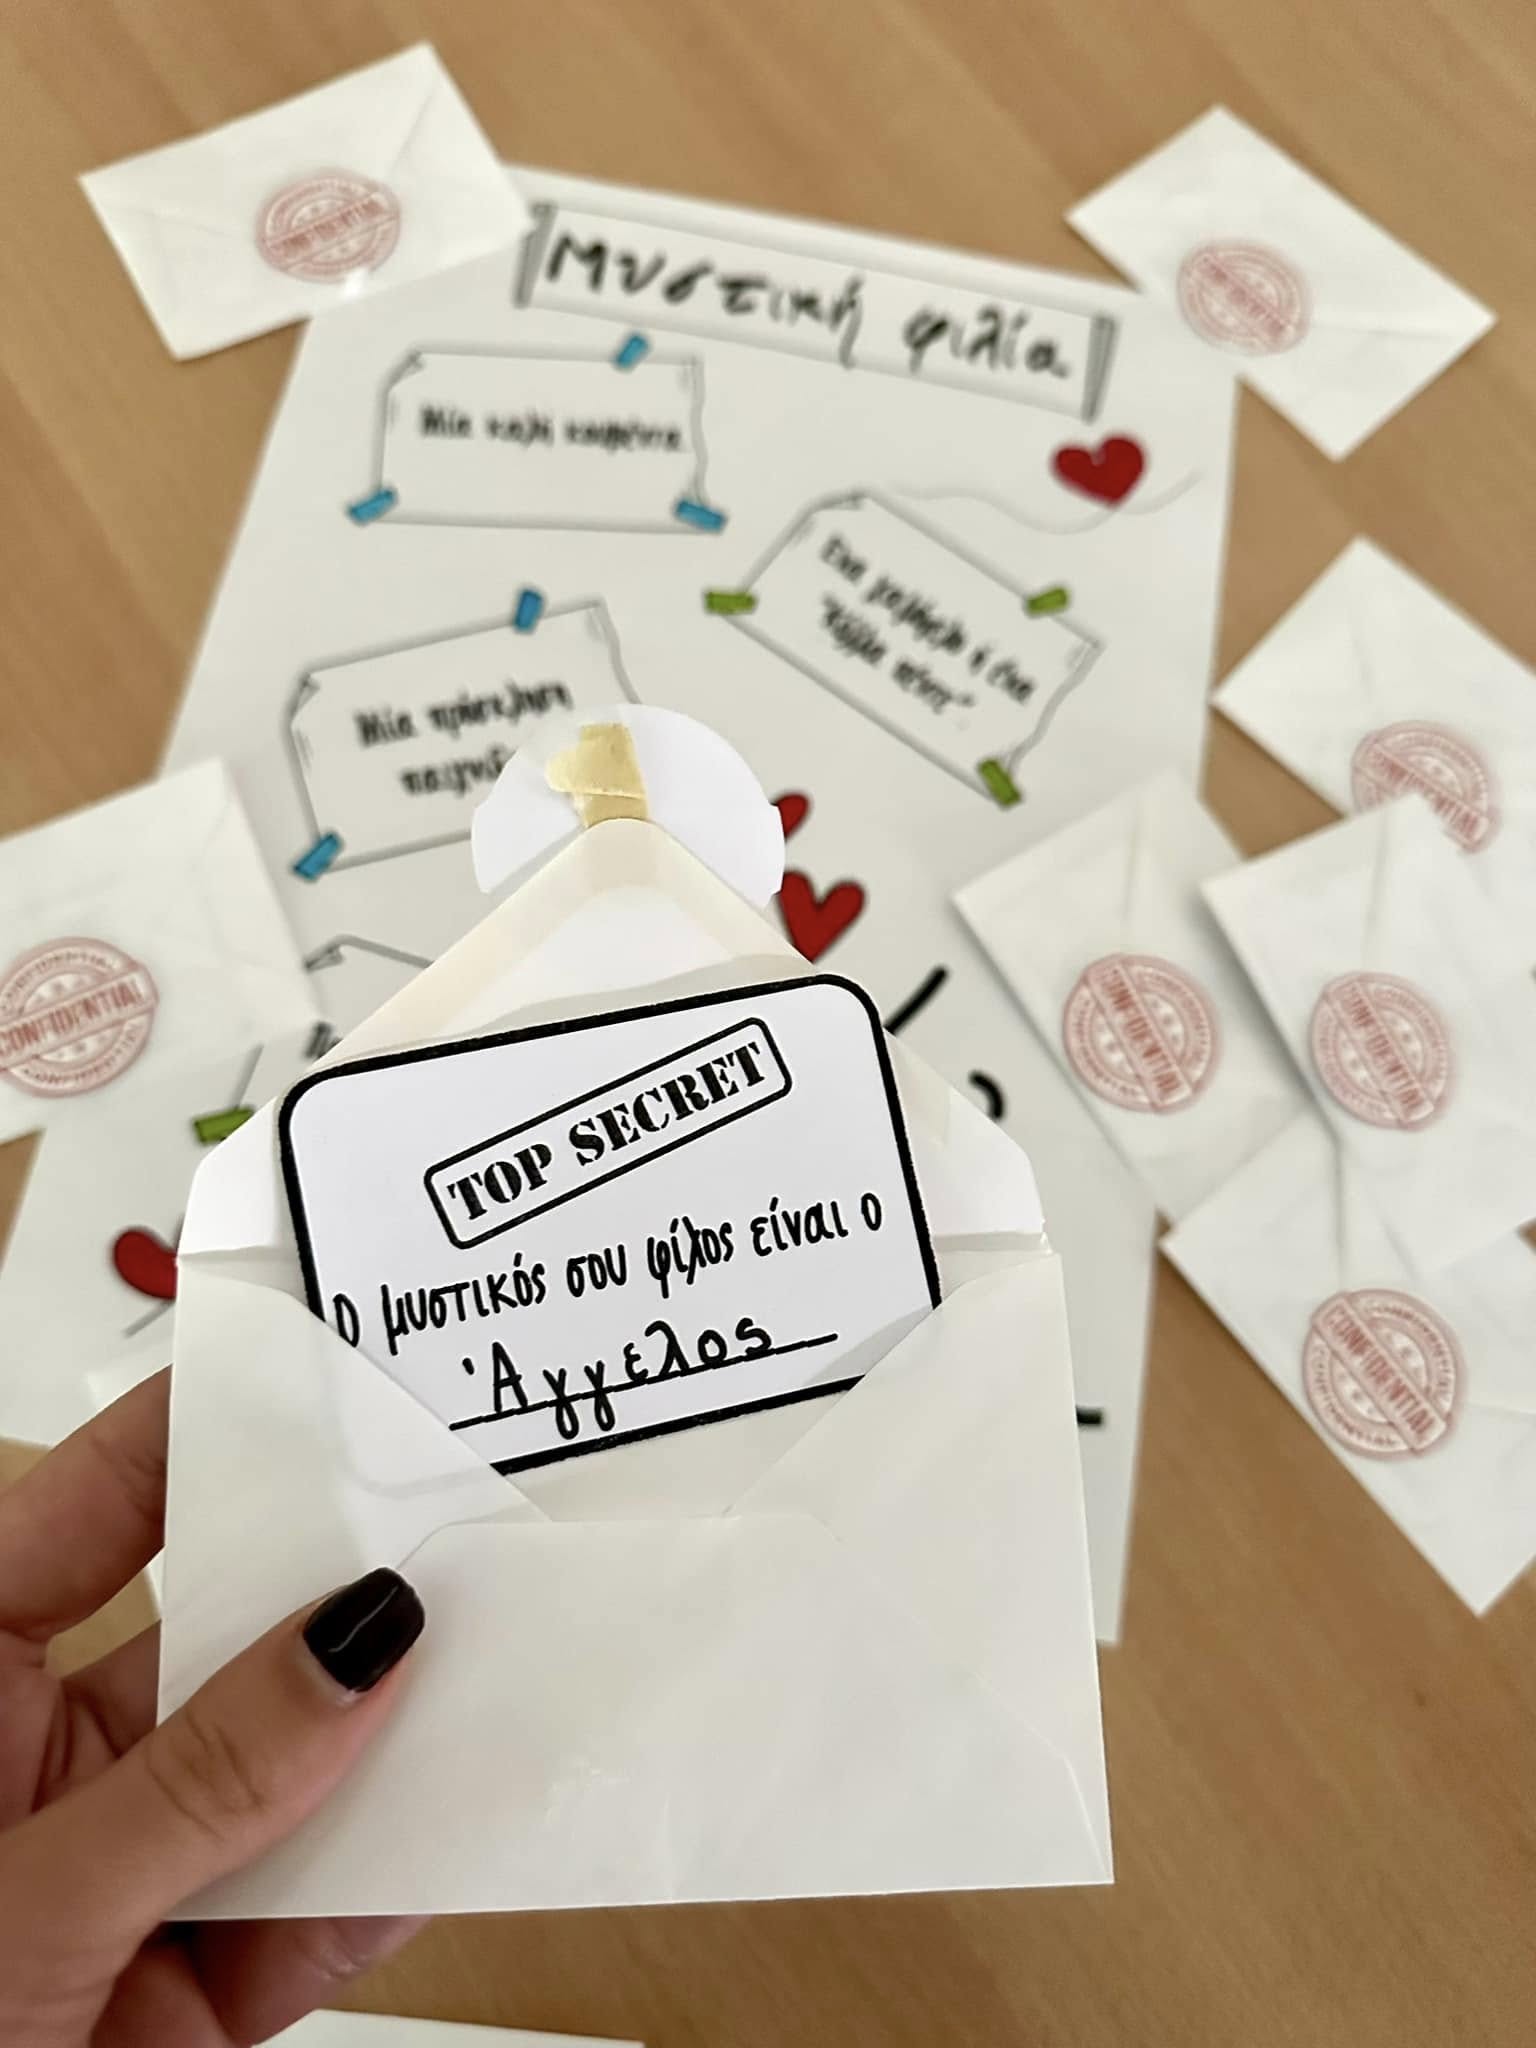 Μυστική φιλία
Μία καλή κουβέντα
Ένα χαμόγελο ή ένα
"Κόλλα πέντε".
Μία πρόσκληση
TOP SECRET
Ο μυστικός σου φίλος είναι ο
Άγγελος
CONFIDENTIAL
CONFIDENTIAL
CONFIDENTIAL
CONFIDENTIAL
CONFIDENTIAL
CONFIDENTIAL
CONFIDENTIAL